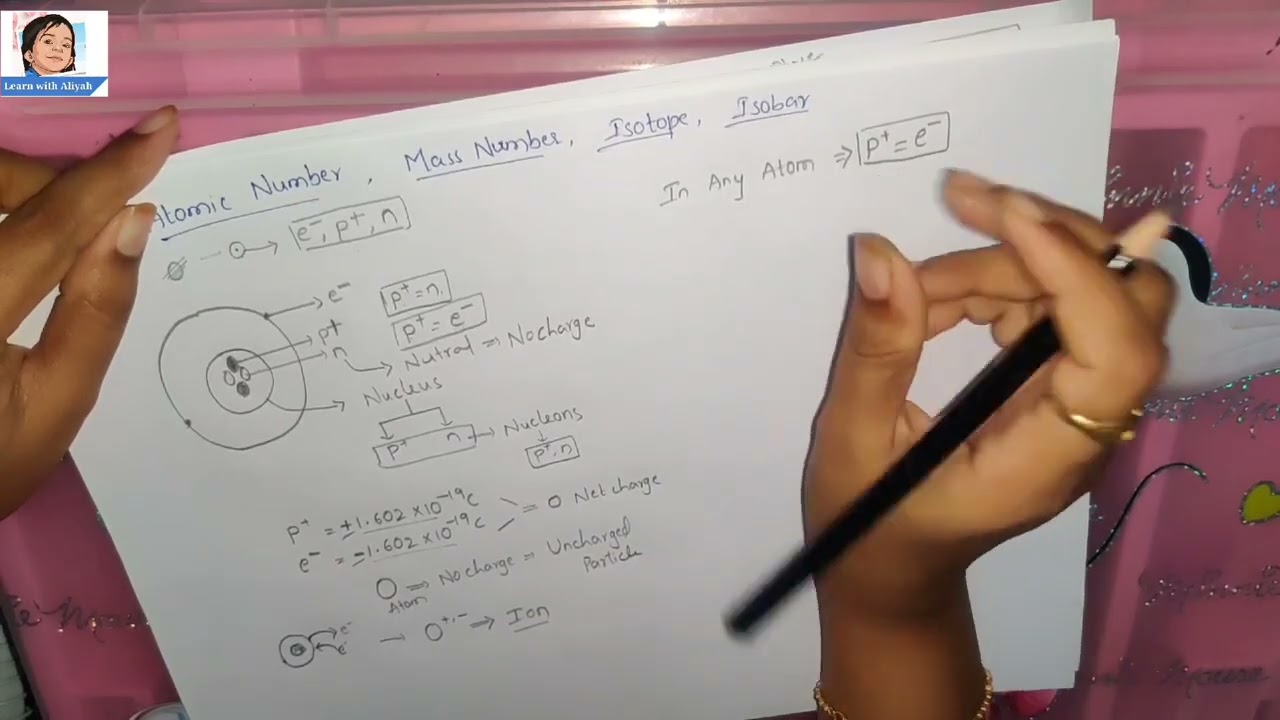 Learn with Aliyah
Atomic Number, Mass Number, Isotope, Isobar
e⁻, p⁺, n
In Any Atom ⇒ p⁺ = e⁻
e⁻
p⁺
n
p⁺ = n.
p⁺ = e⁻
Nutral ⇒ No charge
Nucleus
p⁺ n → Nucleons
p⁺, n
p⁺ = +1.602 × 10⁻¹⁹ C
e⁻ = -1.602 × 10⁻¹⁹ C
= 0 Net charge
O ⇒ No charge = Uncharged Particle
Atom
e⁻
e⁻
→ O⁺·⁻ ⇒ Ion